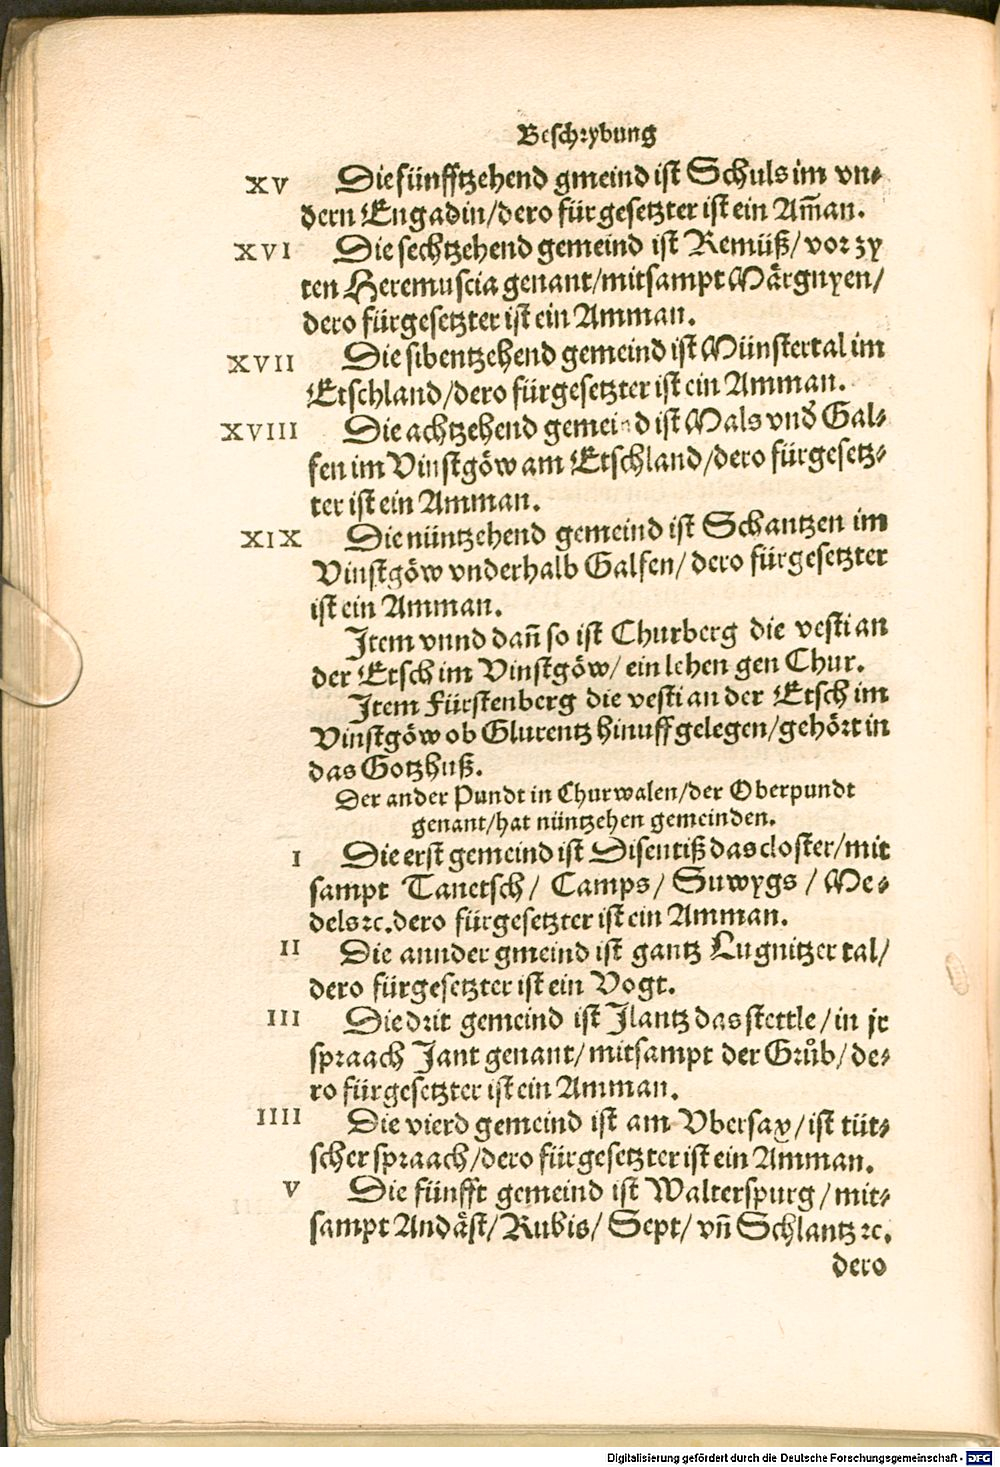 Beschrybung
XV Die fünfftzehend gmeind ist Schuls im vn-
dern Engadin/dero fürgesetzter ist ein Am̄an.
XVI Die sechtzehend gemeind ist Remüß/vor zy
ten Heremuscia genant/mitsampt Mårgnyen/
dero fürgesetzter ist ein Amman.
XVII Die sibentzehend gemeind ist Münstertal im
Etschland/dero fürgesetzter ist ein Amman.
XVIII Die achtzehend gemeind ist Mals vnd Gal-
fen im Vinstgöw am Etschland/dero fürgesetz-
ter ist ein Amman.
XIX Die nüntzehend gemeind ist Schantzen im
Vinstgöw vnderhalb Galfen/ dero fürgesetzter
ist ein Amman.
Item vnnd dan̄ so ist Churberg die vesti an
der Etsch im Vinstgöw/ ein lehen gen Chur.
Item Fürstenberg die vesti an der Etsch im
Vinstgöw ob Glurentz hinuff gelegen/gehört in
das Gotzhuß.
Der ander Pundt in Churwalen/der Oberpundt
genant/hat nüntzehen gemeinden.
I Die erst gemeind ist Disentiß das closter/mit
sampt Tanetsch/ Camps/ Suwygs/ Me-
dels ꝛc. dero fürgesetzter ist ein Amman.
II Die annder gmeind ist gantz Lugnitzer tal/
dero fürgesetzter ist ein Vogt.
III Die drit gemeind ist Jlantz das stettle/in jr
spraach Jant genant/mitsampt der Grůb/de-
ro fürgesetzter ist ein Amman.
IIII Die vierd gemeind ist am Vbersax/ist tüt-
scher spraach/dero fürgesetzter ist ein Amman.
V Die fünfft gemeind ist Walterspurg/mit-
sampt Andåst/Rubis/ Sept/ vn̄ Schlantz ꝛc.
dero
Digitalisierung gefördert durch die Deutsche Forschungsgemeinschaft - DFG